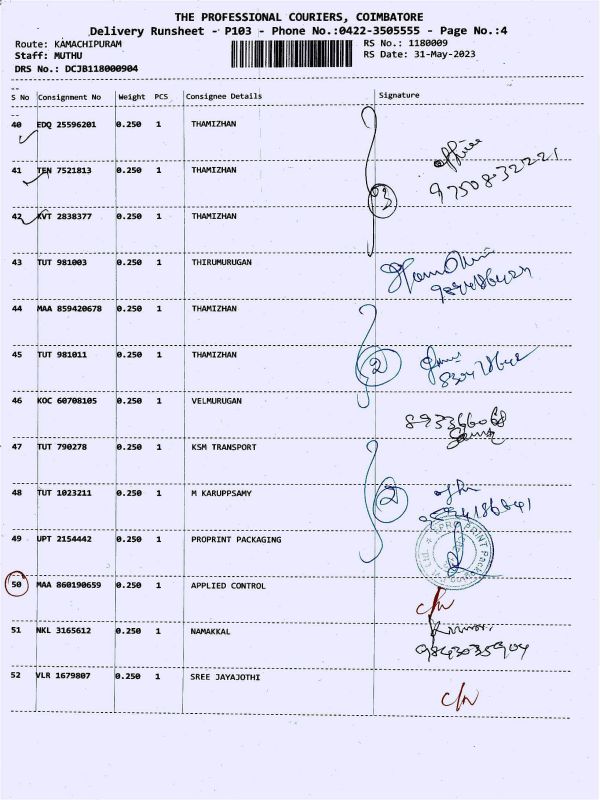 THE PROFESSIONAL COURIERS, COIMBATORE
Delivery Runsheet - P103 - Phone No.:0422-3505555 - Page No.:4
Route: KAMACHIPURAM
RS No.: 1180009
Staff: MUTHU
RS Date: 31-May-2023
DRS No.: DCJB118000904
S No Consignment No Weight PCS Consignee Details Signature
40 EDQ 25596201 0.250 1 THAMIZHAN
office
9750832221
41 TEN 7521813 0.250 1 THAMIZHAN
3
42 KVT 2838377 0.250 1 THAMIZHAN
43 TUT 981003 0.250 1 THIRUMURUGAN
44 MAA 859420678 0.250 1 THAMIZHAN
45 TUT 981011 0.250 1 THAMIZHAN
2
46 KOC 60708105 0.250 1 VELMURUGAN
47 TUT 790278 0.250 1 KSM TRANSPORT
48 TUT 1023211 0.250 1 M KARUPPSAMY
2
49 UPT 2154442 0.250 1 PROPRINT PACKAGING
50 MAA 860190659 0.250 1 APPLIED CONTROL
c/n
51 NKL 3165612 0.250 1 NAMAKKAL
9843035904
52 VLR 1679807 0.250 1 SREE JAYAJOTHI
c/n